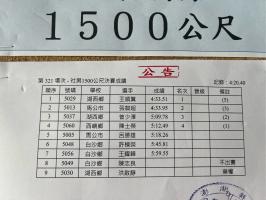 1500公尺
公告
第 321 場次 - 社男1500公尺決賽成績 記錄：4:20.40
順序 號碼 學校 選手 成績 名次 晉級 備註
1 5029 湖西鄉 4:33.51 1 (5)
2 5013 馬公市 4:33.95 2 (3)
3 5037 湖西鄉 曾少澤 5:09.78 3 (2)
4 5060 西嶼鄉 陳士榮 5:12.49 4 (1)
5 5005 馬公市 5:18.26
6 5048 白沙鄉 許棋榮 5:45.81
7 5056 白沙鄉 5:59.55
8 5049 白沙鄉 陳志良 不出賽
9 5030 湖西鄉 洪啟靜 棄權